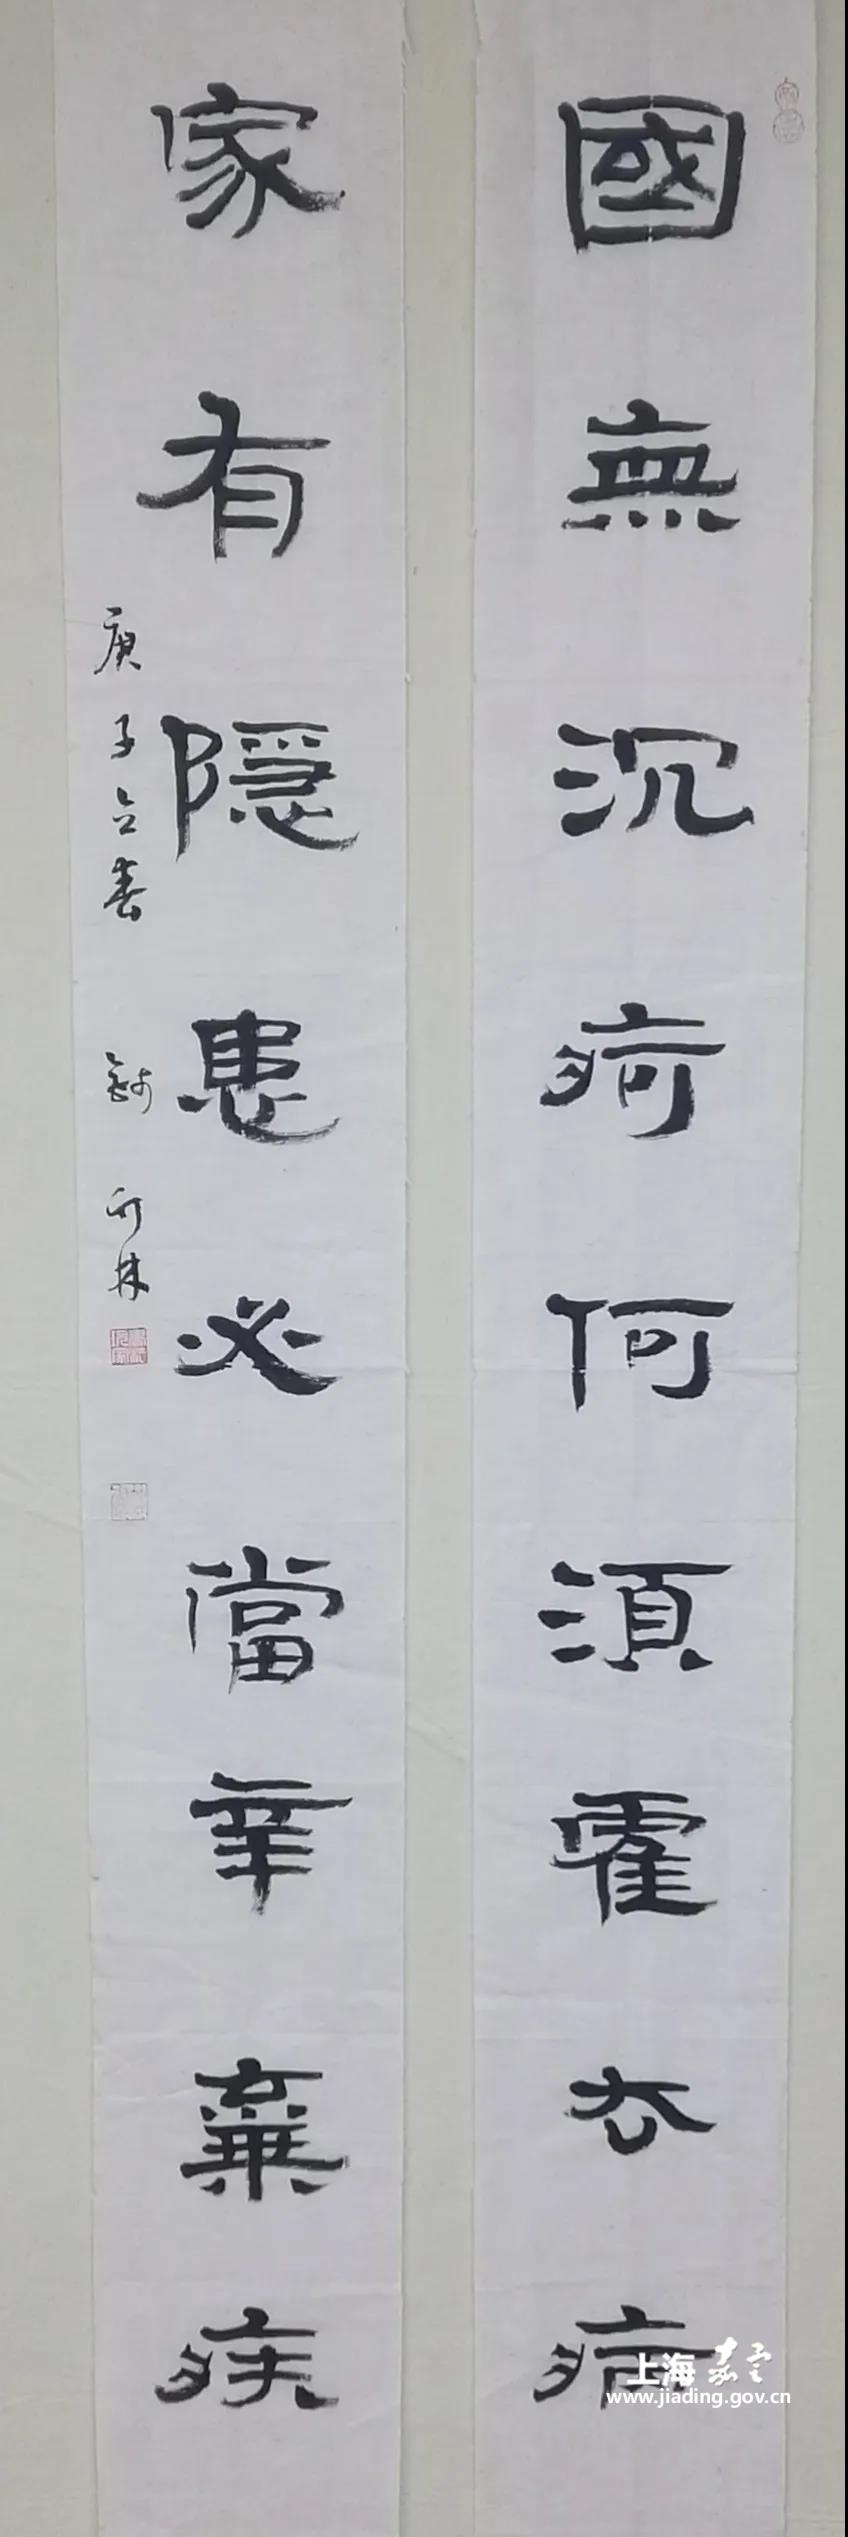 國無沉疴何須霍去病
家有隱患必當辛棄疾
庚子立春
上海
www.jiading.gov.cn